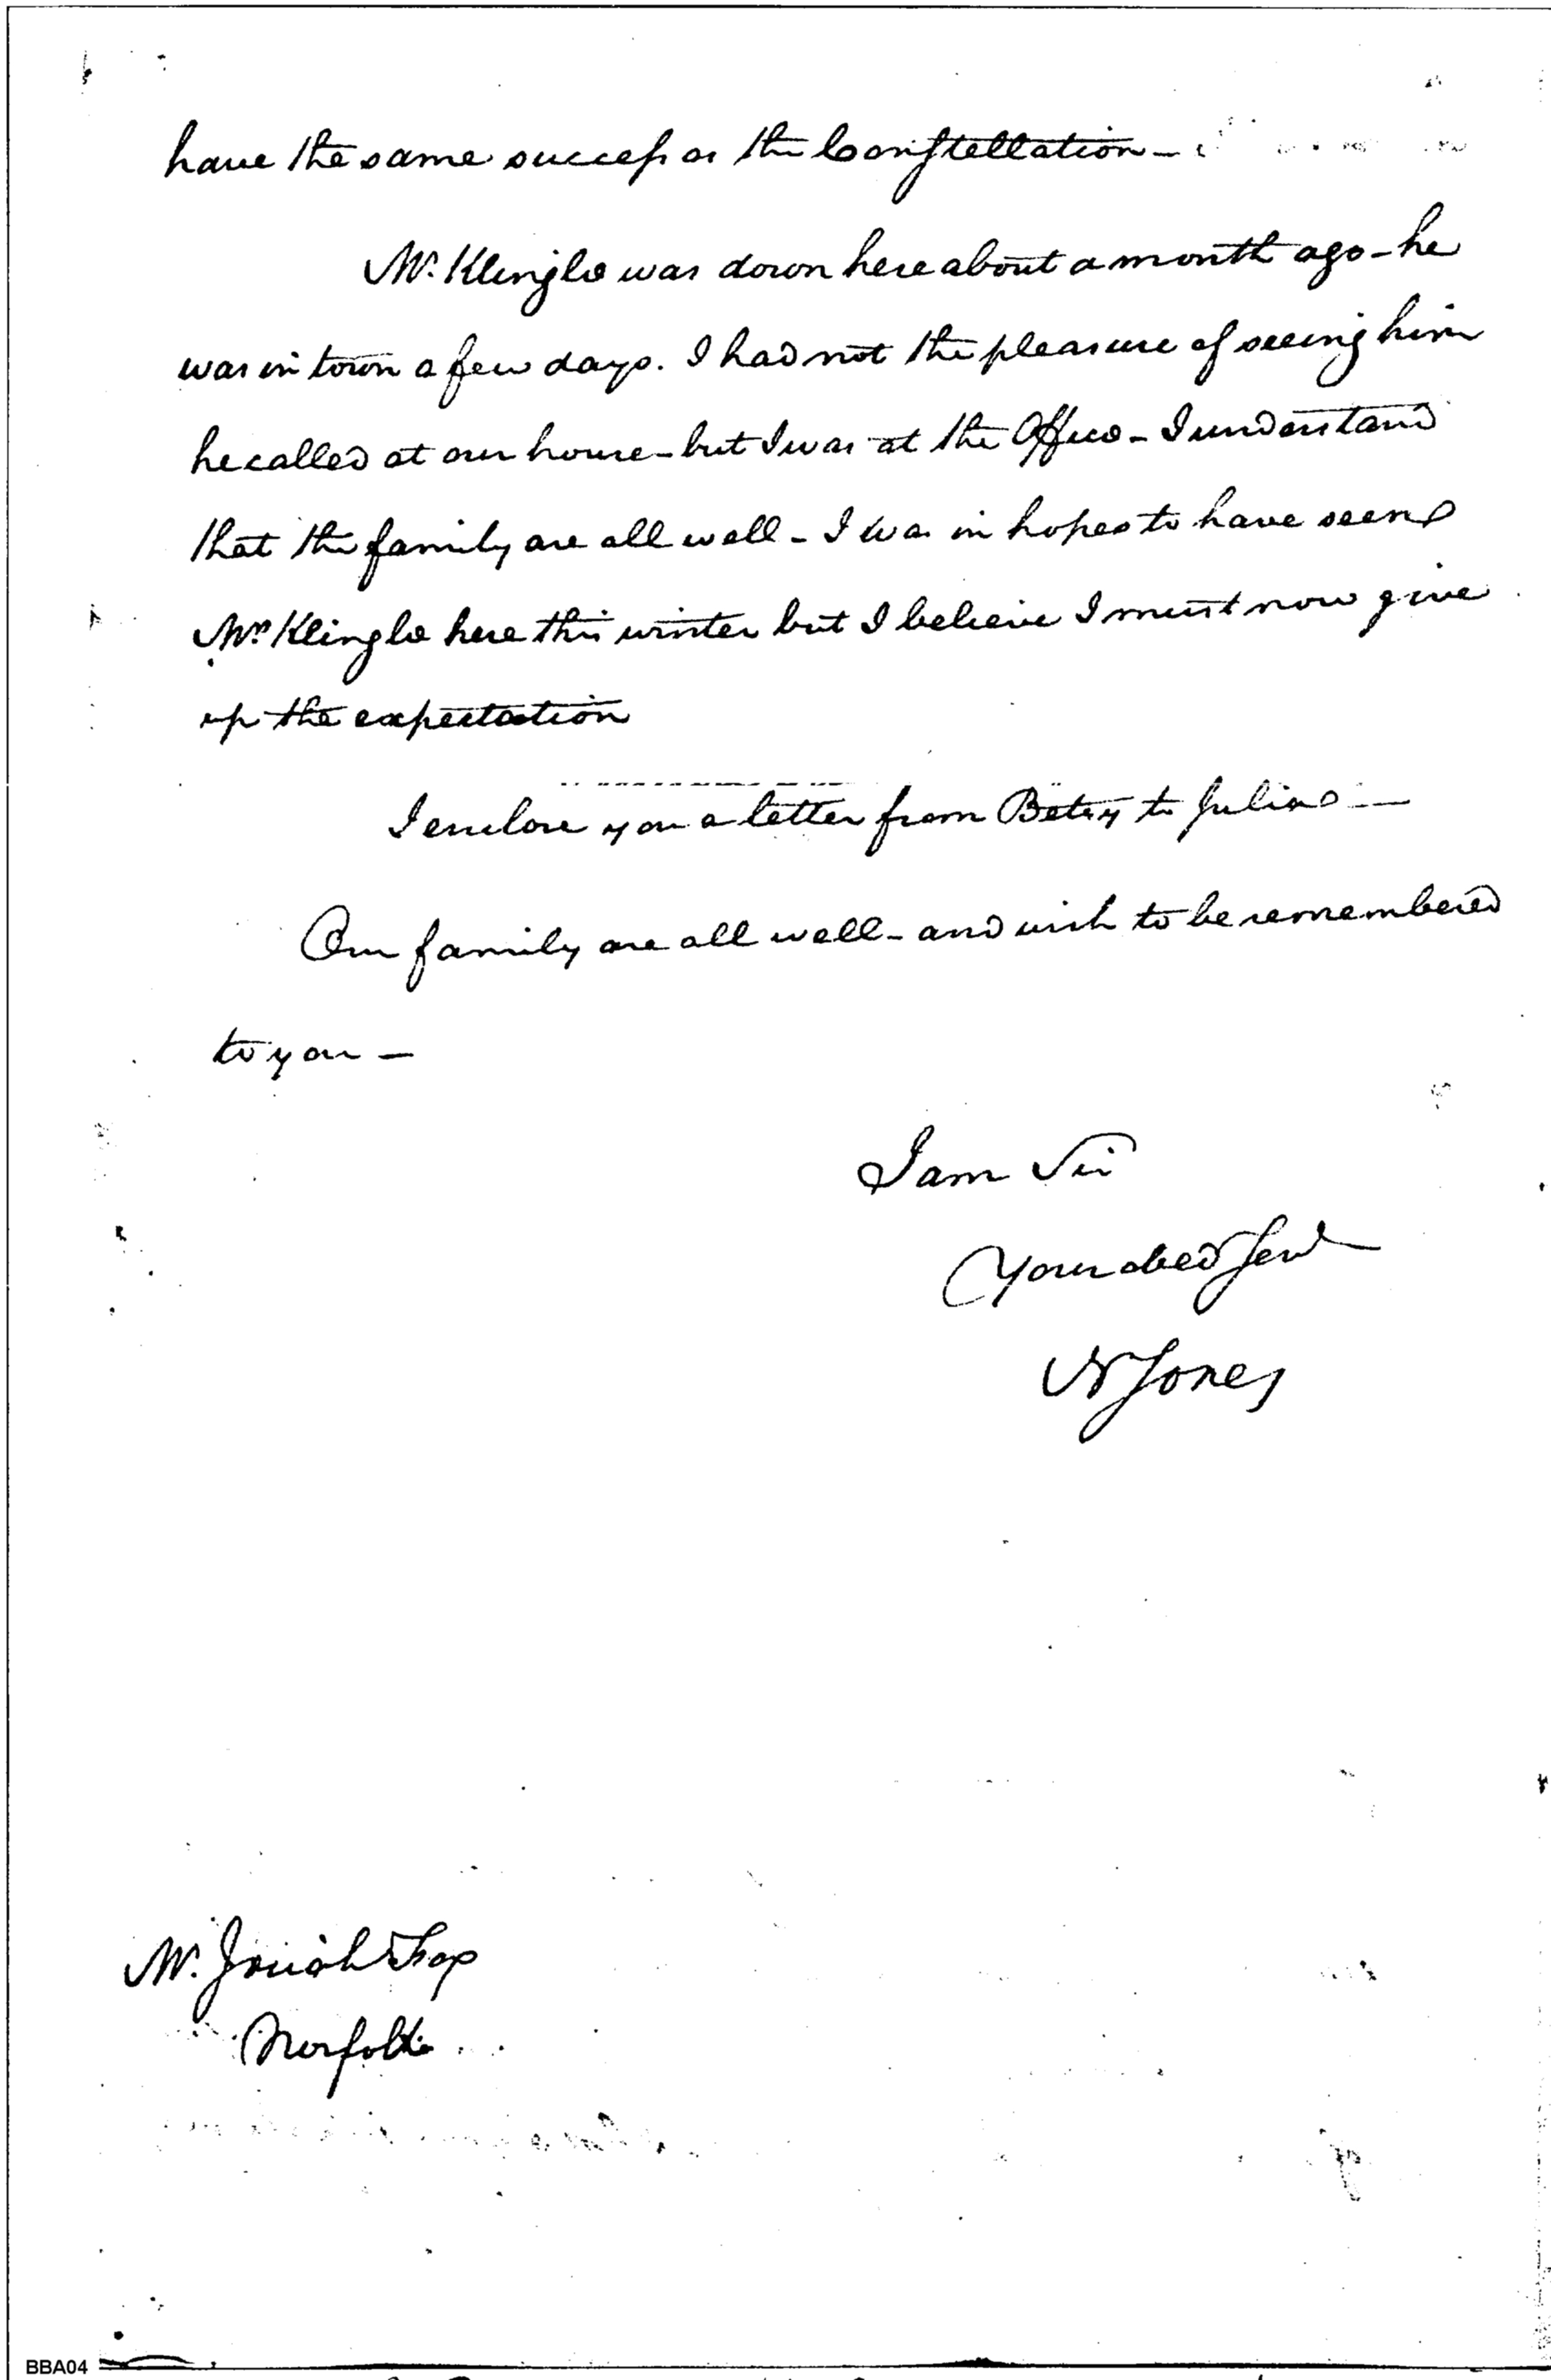 have the same success as the Constellation –
Mr. Klingle was down here about a month ago – he
was in town a few days. I had not the pleasure of seeing him
he called at our house – but I was at the Office – I understand
that the family are all well – I was in hopes to have seen
Mrs Klingle here this winter but I believe I must now give
up the expectation
I enclose you a letter from Betsy to Julia –
Our family are all well – and wish to be remembered
to you –
I am Sir
Your obed Servt
N Jones
Mr. Josiah Fox
Norfolk
BBA04